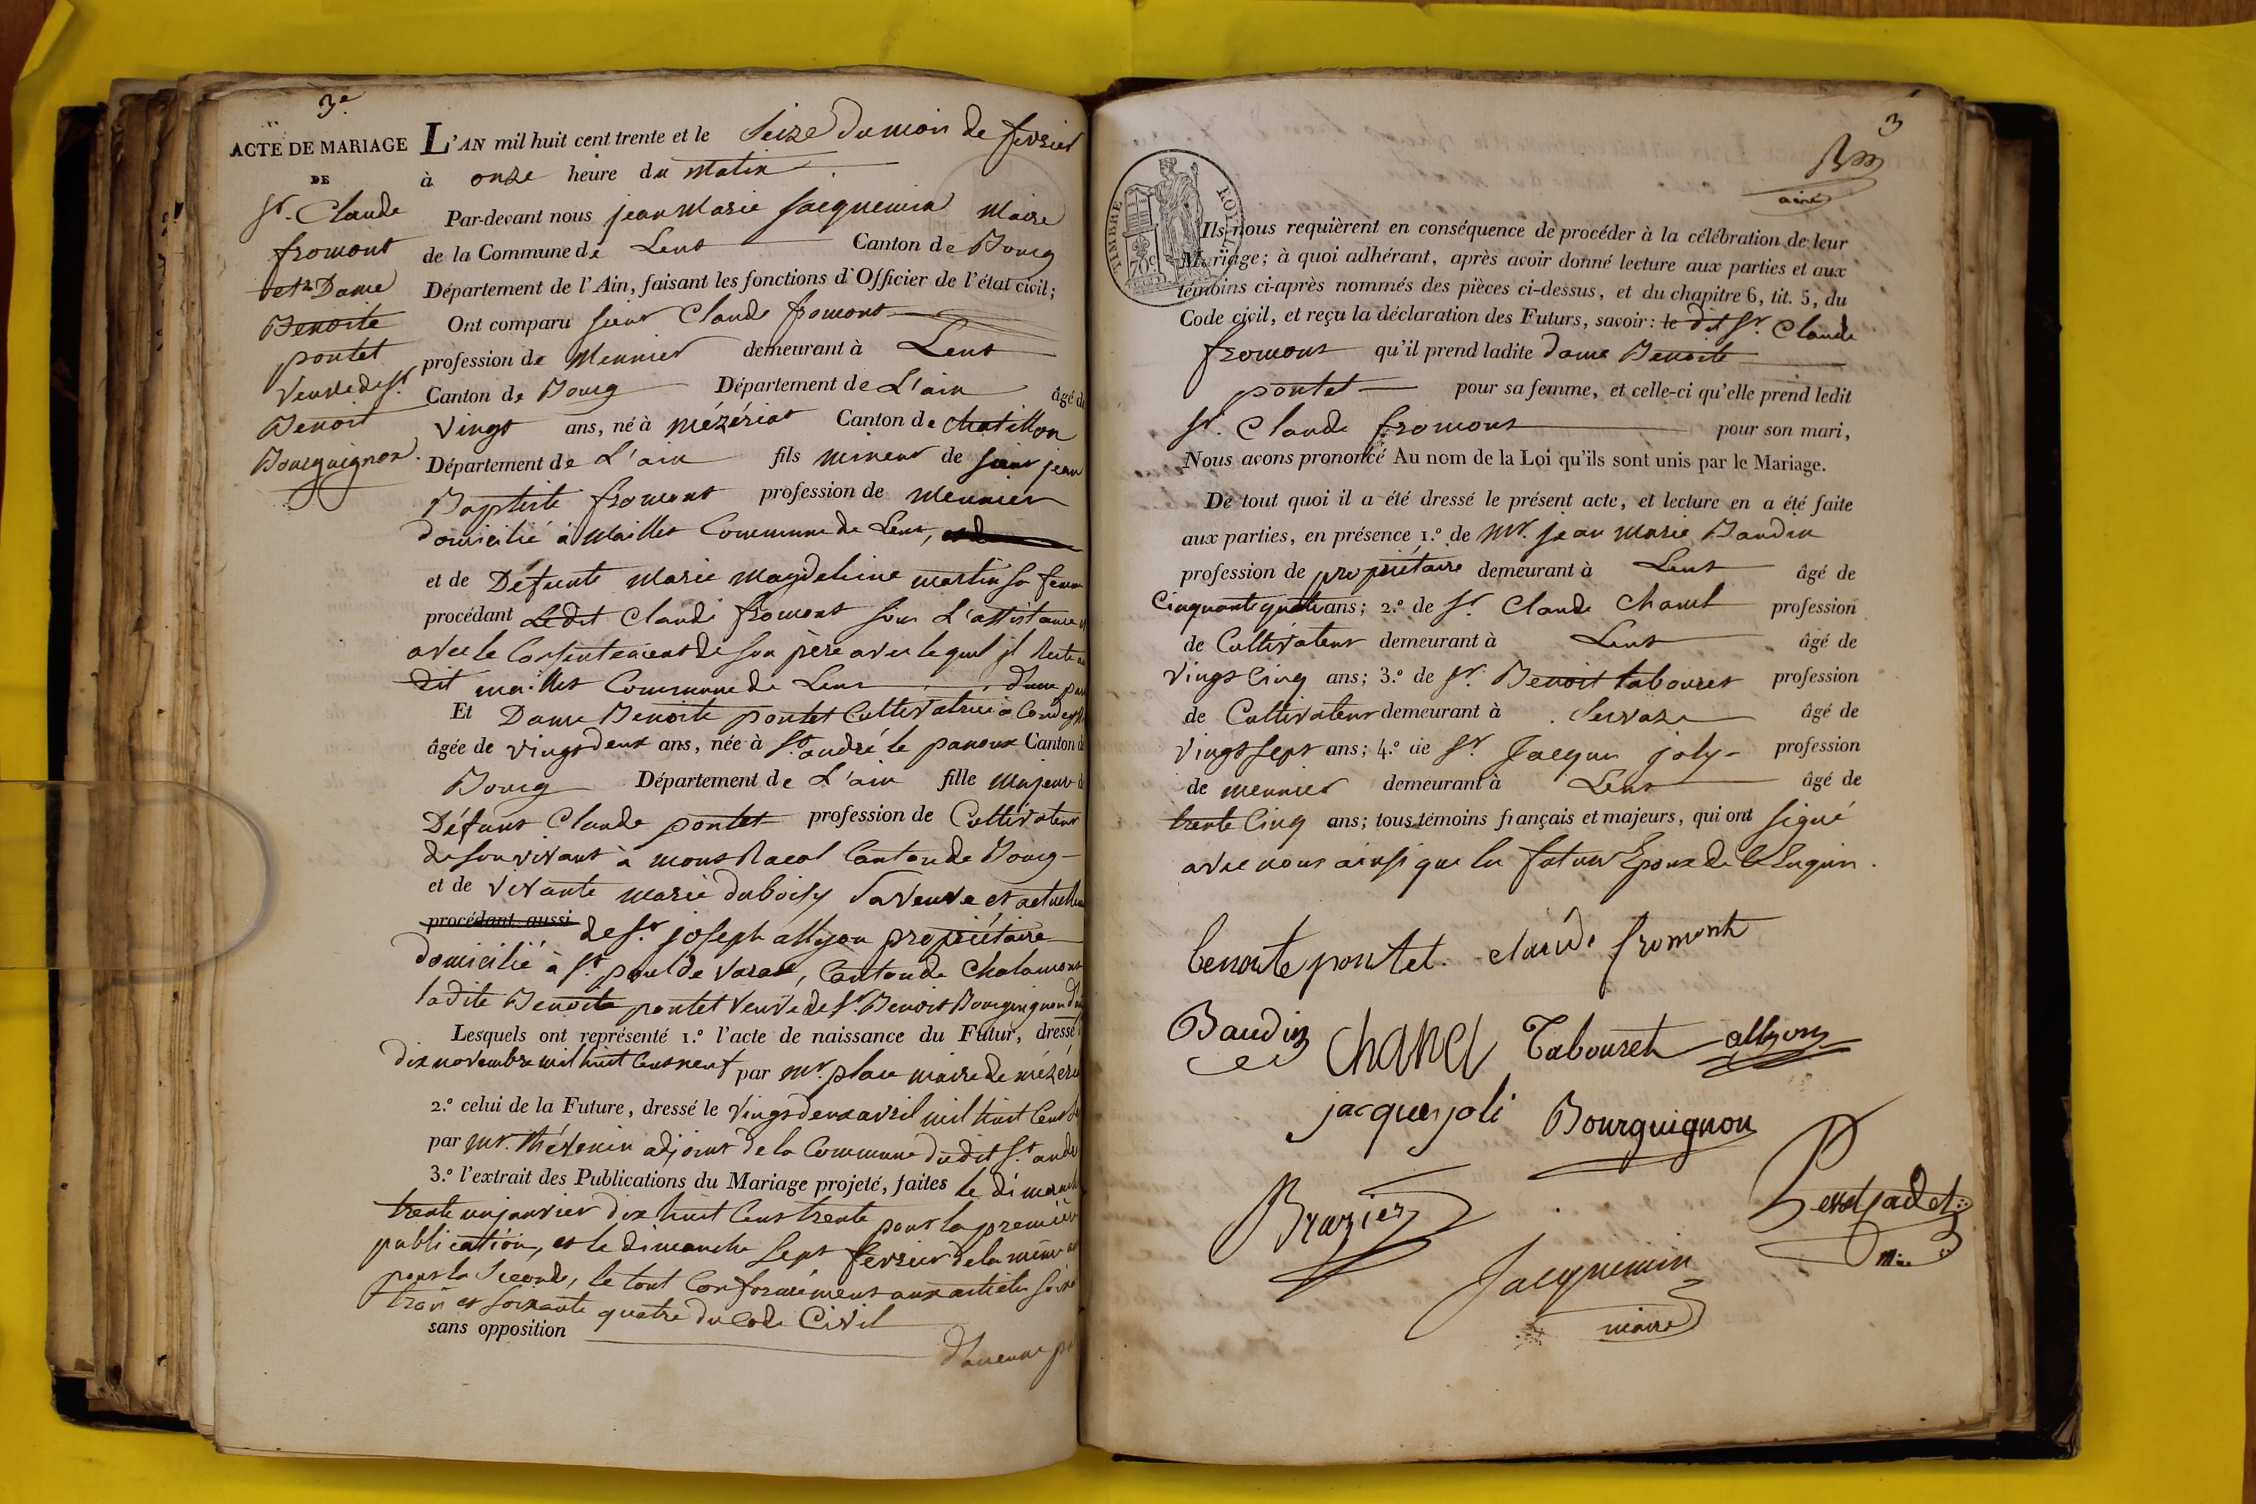 3e
ACTE DE MARIAGE
DE
Sr. Claude
fromont
et Dame
Benoite
pontet
veuve de Sr.
Benoit
Bourguignon
L'AN mil huit cent trente et le Seize du mois de fevrier
à onze heure du matin
Par-devant nous jean Marie Jacquemin Maire
de la Commune de Lent Canton de Bourg
Département de l'Ain, faisant les fonctions d'Officier de l'état civil;
Ont comparu sieur Claude fromont
profession de Meunier demeurant à Lent
Canton de Bourg Département de L'ain âgé de
vingt ans, né à mézériat Canton de chatillon
Département de L'ain fils mineur de sieur jean
Baptiste fromont profession de meunier
domicilié à Maillet Commune de Lent,
et de Défunte Marie Magdeleine martin sa femme
procédant Ledit Claude fromont sous L'assistance et
avec le Consentement de son père avec lequel il Reste au
dit maillet Commune de Lent d'une part
Et Dame Benoite pontet Cultivatrice à
âgée de vingt deux ans, née à St. andré le panoux Canton de
Bourg Département de L'ain fille majeure de
Défunt Claude pontet profession de Cultivateur
de son vivant à mont Racol Canton de Bourg
et de vivante marie duboisy Sa veuve et actuellement
procédant aussi de Sr. joseph allyon propriétaire
domicilié à St. paul de varax, Canton de Chalamont
ladite Benoite pontet veuve de Sr. Benoit Bourguignon
Lesquels ont représenté 1.º l'acte de naissance du Futur, dressé
dix novembre mil huit cent neuf par mr. place maire de mézériat
2.º celui de la Future, dressé le vingt deux avril mil huit Cent
par mr. thévenin adjoint de la Commune dudit St. andré
3.º l'extrait des Publications du Mariage projeté, faites le dimanche
trente un janvier dix huit Cent trente pour la première
publication, et le dimanche Sept fevrier de la même
pour la Seconde, le tout Conformément aux articles soixante
trois et soixante quatre du Code Civil
sans opposition d'aucune
3
TIMBRE ROYAL
70c
Ils nous requièrent en conséquence de procéder à la célébration de leur
Mariage; à quoi adhérant, après avoir donné lecture aux parties et aux
témoins ci-après nommés des pièces ci-dessus, et du chapitre 6, tit. 5, du
Code civil, et reçu la déclaration des Futurs, savoir: le dit Sr. Claude
fromont qu'il prend ladite dame Benoite
pontet pour sa femme, et celle-ci qu'elle prend ledit
Sr. Claude fromont pour son mari,
Nous avons prononcé Au nom de la Loi qu'ils sont unis par le Mariage.
De tout quoi il a été dressé le présent acte, et lecture en a été faite
aux parties, en présence 1.º de Mr. jean Marie Baudin
profession de propriétaire demeurant à Lent âgé de
Cinquante quatre ans; 2.º de Sr Claude Chanel profession
de Cultivateur demeurant à Lent âgé de
vingt Cinq ans; 3.º de Sr. Benoit tabouret profession
de Cultivateur demeurant à Servas âgé de
vingt sept ans; 4.º de Sr Jacques joly profession
de meunier demeurant à Lent âgé de
trente Cinq ans; tous témoins français et majeurs, qui ont signé
avec nous ainsi que les futurs Epoux de Ce Enquis.
benoite pontet. claude fromont
Baudin chanel Tabouret allyon
jacques joli Bourguignon
Brazier
Jacquemin
maire